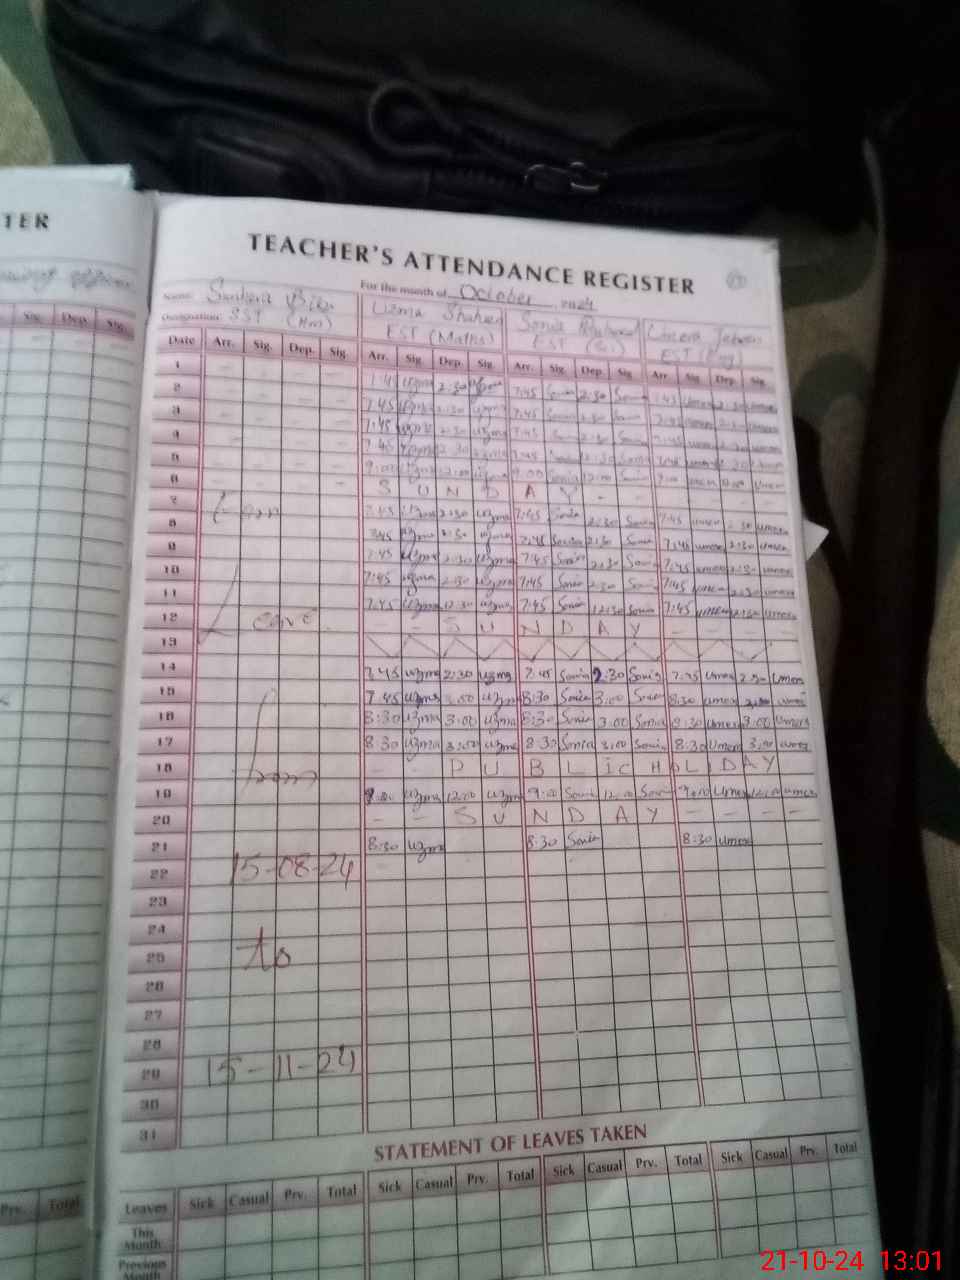 TER
TEACHER'S ATTENDANCE REGISTER
For the month of October 2024
Name: Bibi Uzma Shaheen Sonia
Designation: SST (Hm) EST (Maths) EST (Sc.) EST (Eng)
Sig. Dep. Sig.
Date Arr. Sig. Dep. Sig. Arr. Sig. Dep. Sig. Arr. Sig. Dep. Sig. Arr. Sig. Dep. Sig.
1 - - - -
2 7:45 Uzma 2:30 Uzma 7:45 Sonia 2:30 Sonia 7:45 Umera 2:30 Umera
3 7:45 Uzma 2:30 Uzma 7:45 Sonia 2:30 Sonia 7:45 Umera 2:30 Umera
4 7:45 Uzma 12:30 Uzma 7:45 Sonia 12:30 Sonia 7:45 Umera 12:30 Umera
5 9:00 Uzma 12:00 Uzma 9:00 Sonia 12:00 Sonia 9:00 Umera 12:00 Umera
6 S U N D A Y - - - - -
7 7:45 Uzma 2:30 Uzma 7:45 Sonia 2:30 Sonia 7:45 Umera 2:30 Umera
8 7:45 Uzma 2:30 Uzma 7:45 Sonia 2:30 Sonia 7:45 Umera 2:30 Umera
9 7:45 Uzma 2:30 Uzma 7:45 Sonia 2:30 Sonia 7:45 Umera 2:30 Umera
10 7:45 Uzma 2:30 Uzma 7:45 Sonia 2:30 Sonia 7:45 Umera 2:30 Umera
11 7:45 Uzma 12:30 Uzma 7:45 Sonia 12:30 Sonia 7:45 Umera 12:30 Umera
12 Leave - - S U N D A Y - - - -
13
14 7:45 Uzma 2:30 Uzma 7:45 Sonia 2:30 Sonia 7:45 Umera 2:30 Umera
15 7:45 Uzma 3:00 Uzma 8:30 Sonia 3:00 Sonia 8:30 Umera 3:00 Umera
16 8:30 Uzma 3:00 Uzma 8:30 Sonia 3:00 Sonia 8:30 Umera 3:00 Umera
17 8:30 Uzma 3:00 Uzma 8:30 Sonia 3:00 Sonia 8:30 Umera 3:00 Umera
18 from - - P U B L I C H O L I D A Y
19 9:00 Uzma 12:00 Uzma 9:00 Sonia 12:00 Sonia 9:00 Umera 12:00 Umera
20 - - S U N D A Y - - - -
21 8:30 Uzma 8:30 Sonia 8:30 Umera
22 15-08-24
23
24
25 to
26
27
28
29 15-11-24
30
31
STATEMENT OF LEAVES TAKEN
Prv. Total
Leaves Sick Casual Prv. Total Sick Casual Prv. Total Sick Casual Prv. Total Sick Casual Prv. Total
This Month
Previous Month
21-10-24 13:01